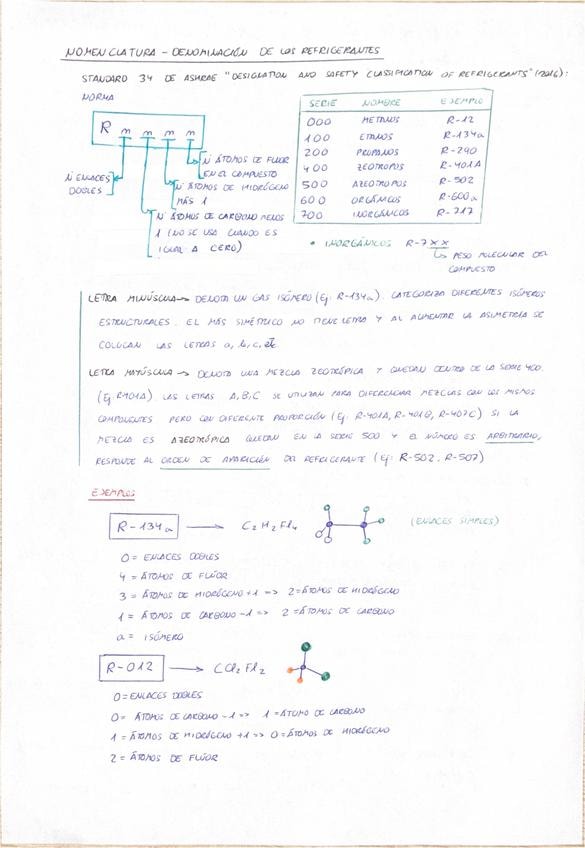 NOMENCLATURA - DENOMINACIÓN DE LOS REFRIGERANTES
STANDARD 34 DE ASHRAE "DESIGNATION AND SAFETY CLASSIFICATION OF REFRIGERANTS" (2016):
NORMA
R m m m m
N ENLACES
DOBLES
N ÁTOMOS DE FLUOR
EN EL COMPUESTO
N ÁTOMOS DE HIDRÓGENO
MÁS 1
N ÁTOMOS DE CARBONO MENOS
1 (NO SE USA CUANDO ES
IGUAL A CERO)
SERIE NOMBRE EJEMPLO
000 METANOS R-12
100 ETANOS R-134a
200 PROPANOS R-290
400 ZEOTROPOS R-401A
500 AZEOTROPOS R-502
600 ORGÁNICOS R-600a
700 INORGÁNICOS R-717
• INORGÁNICOS R-7XX
PESO MOLECULAR DEL
COMPUESTO
LETRA MINÚSCULA → DENOTA UN GAS ISÓMERO (Ej: R-134a). CATEGORIZA DIFERENTES ISÓMEROS
ESTRUCTURALES. EL MÁS SIMÉTRICO NO TIENE LETRA Y AL AUMENTAR LA ASIMETRÍA SE
COLOCAN LAS LETRAS a, b, c, etc.
LETRA MAYÚSCULA → DENOTA UNA MEZCLA ZEOTRÓPICA Y QUEDAN DENTRO DE LA SERIE 400.
(Ej. R401A). LAS LETRAS A, B, C SE UTILIZAN PARA DIFERENCIAR MEZCLAS CON LOS MISMOS
COMPONENTES PERO CON DIFERENTE PROPORCIÓN (Ej: R-401A, R-401B, R-407C) SI LA
MEZCLA ES AZEOTRÓPICA QUEDAN EN LA SERIE 500 Y EL NÚMERO ES ARBITRARIO,
RESPONDE AL ORDEN DE APARICIÓN DEL REFRIGERANTE (Ej: R-502, R-507)
EJEMPLOS
R-134a → C2H2Fl4 (ENLACES SIMPLES)
0 = ENLACES DOBLES
4 = ÁTOMOS DE FLÚOR
3 = ÁTOMOS DE HIDRÓGENO +1 => 2 = ÁTOMOS DE HIDRÓGENO
1 = ÁTOMOS DE CARBONO -1 => 2 = ÁTOMOS DE CARBONO
a = ISÓMERO
R-012 → CCl2Fl2
0 = ENLACES DOBLES
0 = ÁTOMOS DE CARBONO -1 => 1 = ÁTOMO DE CARBONO
1 = ÁTOMOS DE HIDRÓGENO +1 => 0 = ÁTOMOS DE HIDRÓGENO
2 = ÁTOMOS DE FLÚOR